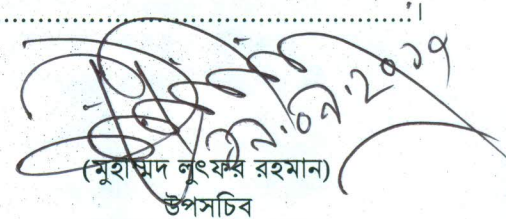 ....................................................।
(মুহাম্মদ লুৎফর রহমান)
উপসচিব